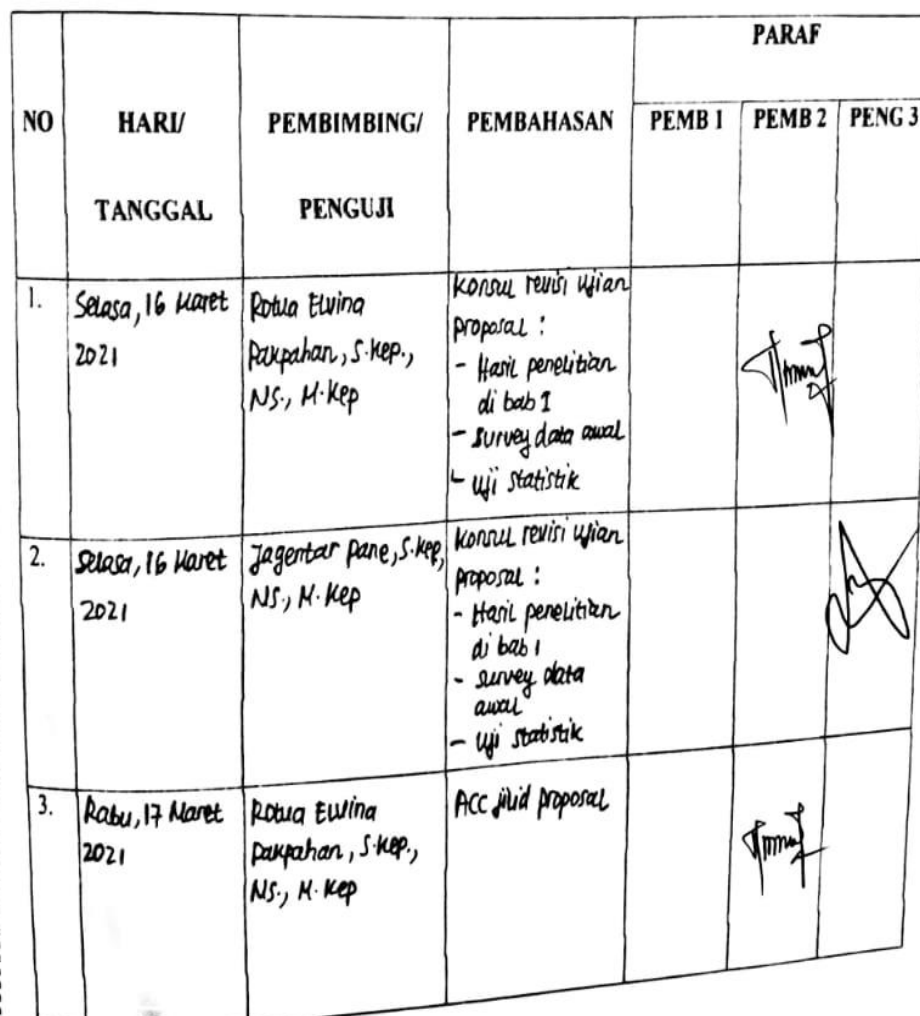 PARAF
NO
HARI/
TANGGAL
PEMBIMBING/
PENGUJI
PEMBAHASAN
PEMB 1
PEMB 2
PENG 3
1.
Selasa, 16 Maret
2021
Rotua Elvina
Pakpahan, S.Kep.,
NS., M.Kep
Konsul revisi ujian
proposal :
- Hasil penelitian
di bab I
- survey data awal
- uji statistik
2.
Selasa, 16 Maret
2021
Jagentar Pane, S.Kep,
NS., M.Kep
Konsul revisi ujian
proposal :
- Hasil penelitian
di bab 1
- survey data
awal
- uji statistik
3.
Rabu, 17 Maret
2021
Rotua Elvina
Pakpahan, S.Kep.,
NS., M.Kep
ACC jilid proposal